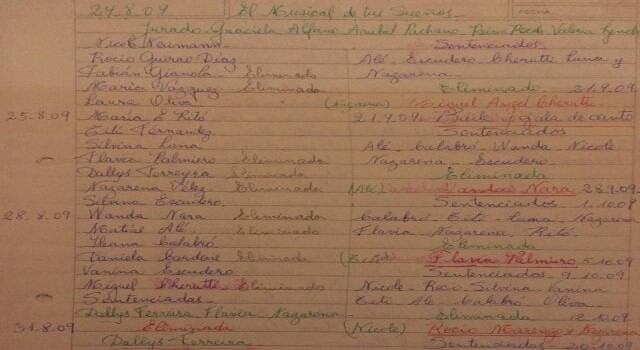 24.8.09 El Musical de tus Sueños. FECHA
Jurado Graciela Alfano Anibal Pachano Reina Reech Valeria Lynch
Nicole Neumann
Rocio Guirao Diaz
Fabián Gianola Eliminado
Maria Vázquez Eliminada
Laura Oliva
25.8.09 Maria E Ritó
Tito Fernandez
Silvina Luna
Flavia Palmiero Eliminada
Dallys Ferreyra Eliminada
Nazarena Vélez Eliminada
Silvina Escudero
28.8.09 Wanda Nara Eliminada
Matías Alé Eliminado
Iliana Calabró
Daniela Cardone Eliminada
Vanina Escudero
Miguel Cherutti Eliminado
Sentenciadas
Dallys Ferreira Flavia Nazarena
31.8.09 Eliminada
Dallys Ferreira
Sentenciados
Alé Escudero Cherutti Luna y
Nazarena
Eliminado 21.9.09
(Nazarena) Miguel Angel Cherutti
21.9.09 Baile y gala de canto
Sentenciados
Alé Calabró Wanda Nicole
Nazarena Escudero
Eliminada
(Alé) Wanda Nara 28.9.09
Sentenciados 1.10.09
Calabró Tito Luna Nazarena
Flavia Nazarena Ritó
Eliminada
Flavia Palmiero 5.10.09
Sentenciados 9.10.09
Nicole Rocio Silvina Vanina
Tito Alé Calabró Oliva
Eliminada 12.10.09
(Nicole) Rocio Marengo x Nazarena
Sentenciados 20.10.09